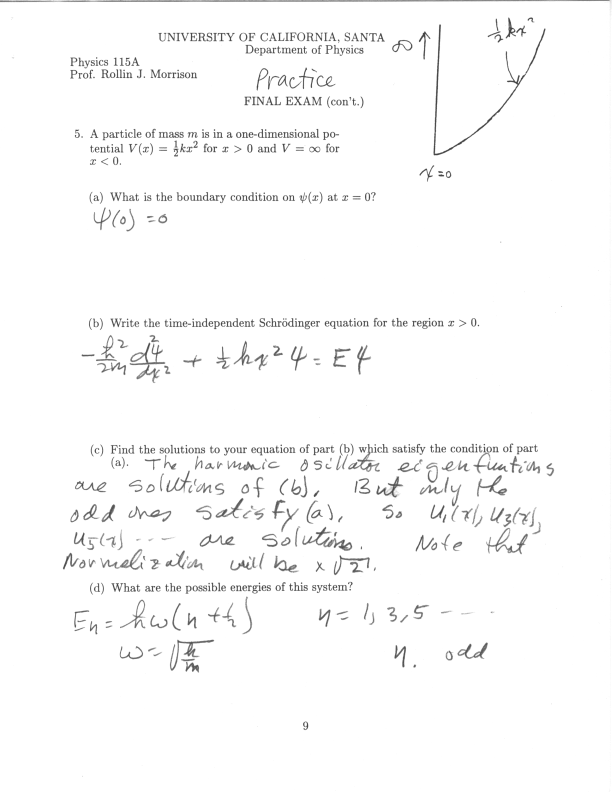 UNIVERSITY OF CALIFORNIA, SANTA
Department of Physics
∞ ↑
½kx²
Physics 115A
Prof. Rollin J. Morrison
Practice
FINAL EXAM (con't.)
x=0
5. A particle of mass m is in a one-dimensional po-
tential V(x) = ½kx² for x > 0 and V = ∞ for
x < 0.
(a) What is the boundary condition on ψ(x) at x = 0?
ψ(0) = 0
(b) Write the time-independent Schrödinger equation for the region x > 0.
-ℏ²/2m d²ψ/dx² + ½kx²ψ = Eψ
(c) Find the solutions to your equation of part (b) which satisfy the condition of part
(a). The harmonic osillator eigenfuntions
are solutions of (b). But only the
odd ones satisfy (a). So u₁(x), u₃(x),
u₅(x) --- are solutions. Note that
Normalization will be x √2.
(d) What are the possible energies of this system?
Eₙ = ℏω(n + ½) n = 1, 3, 5 ---
ω = √k/m n. odd
9